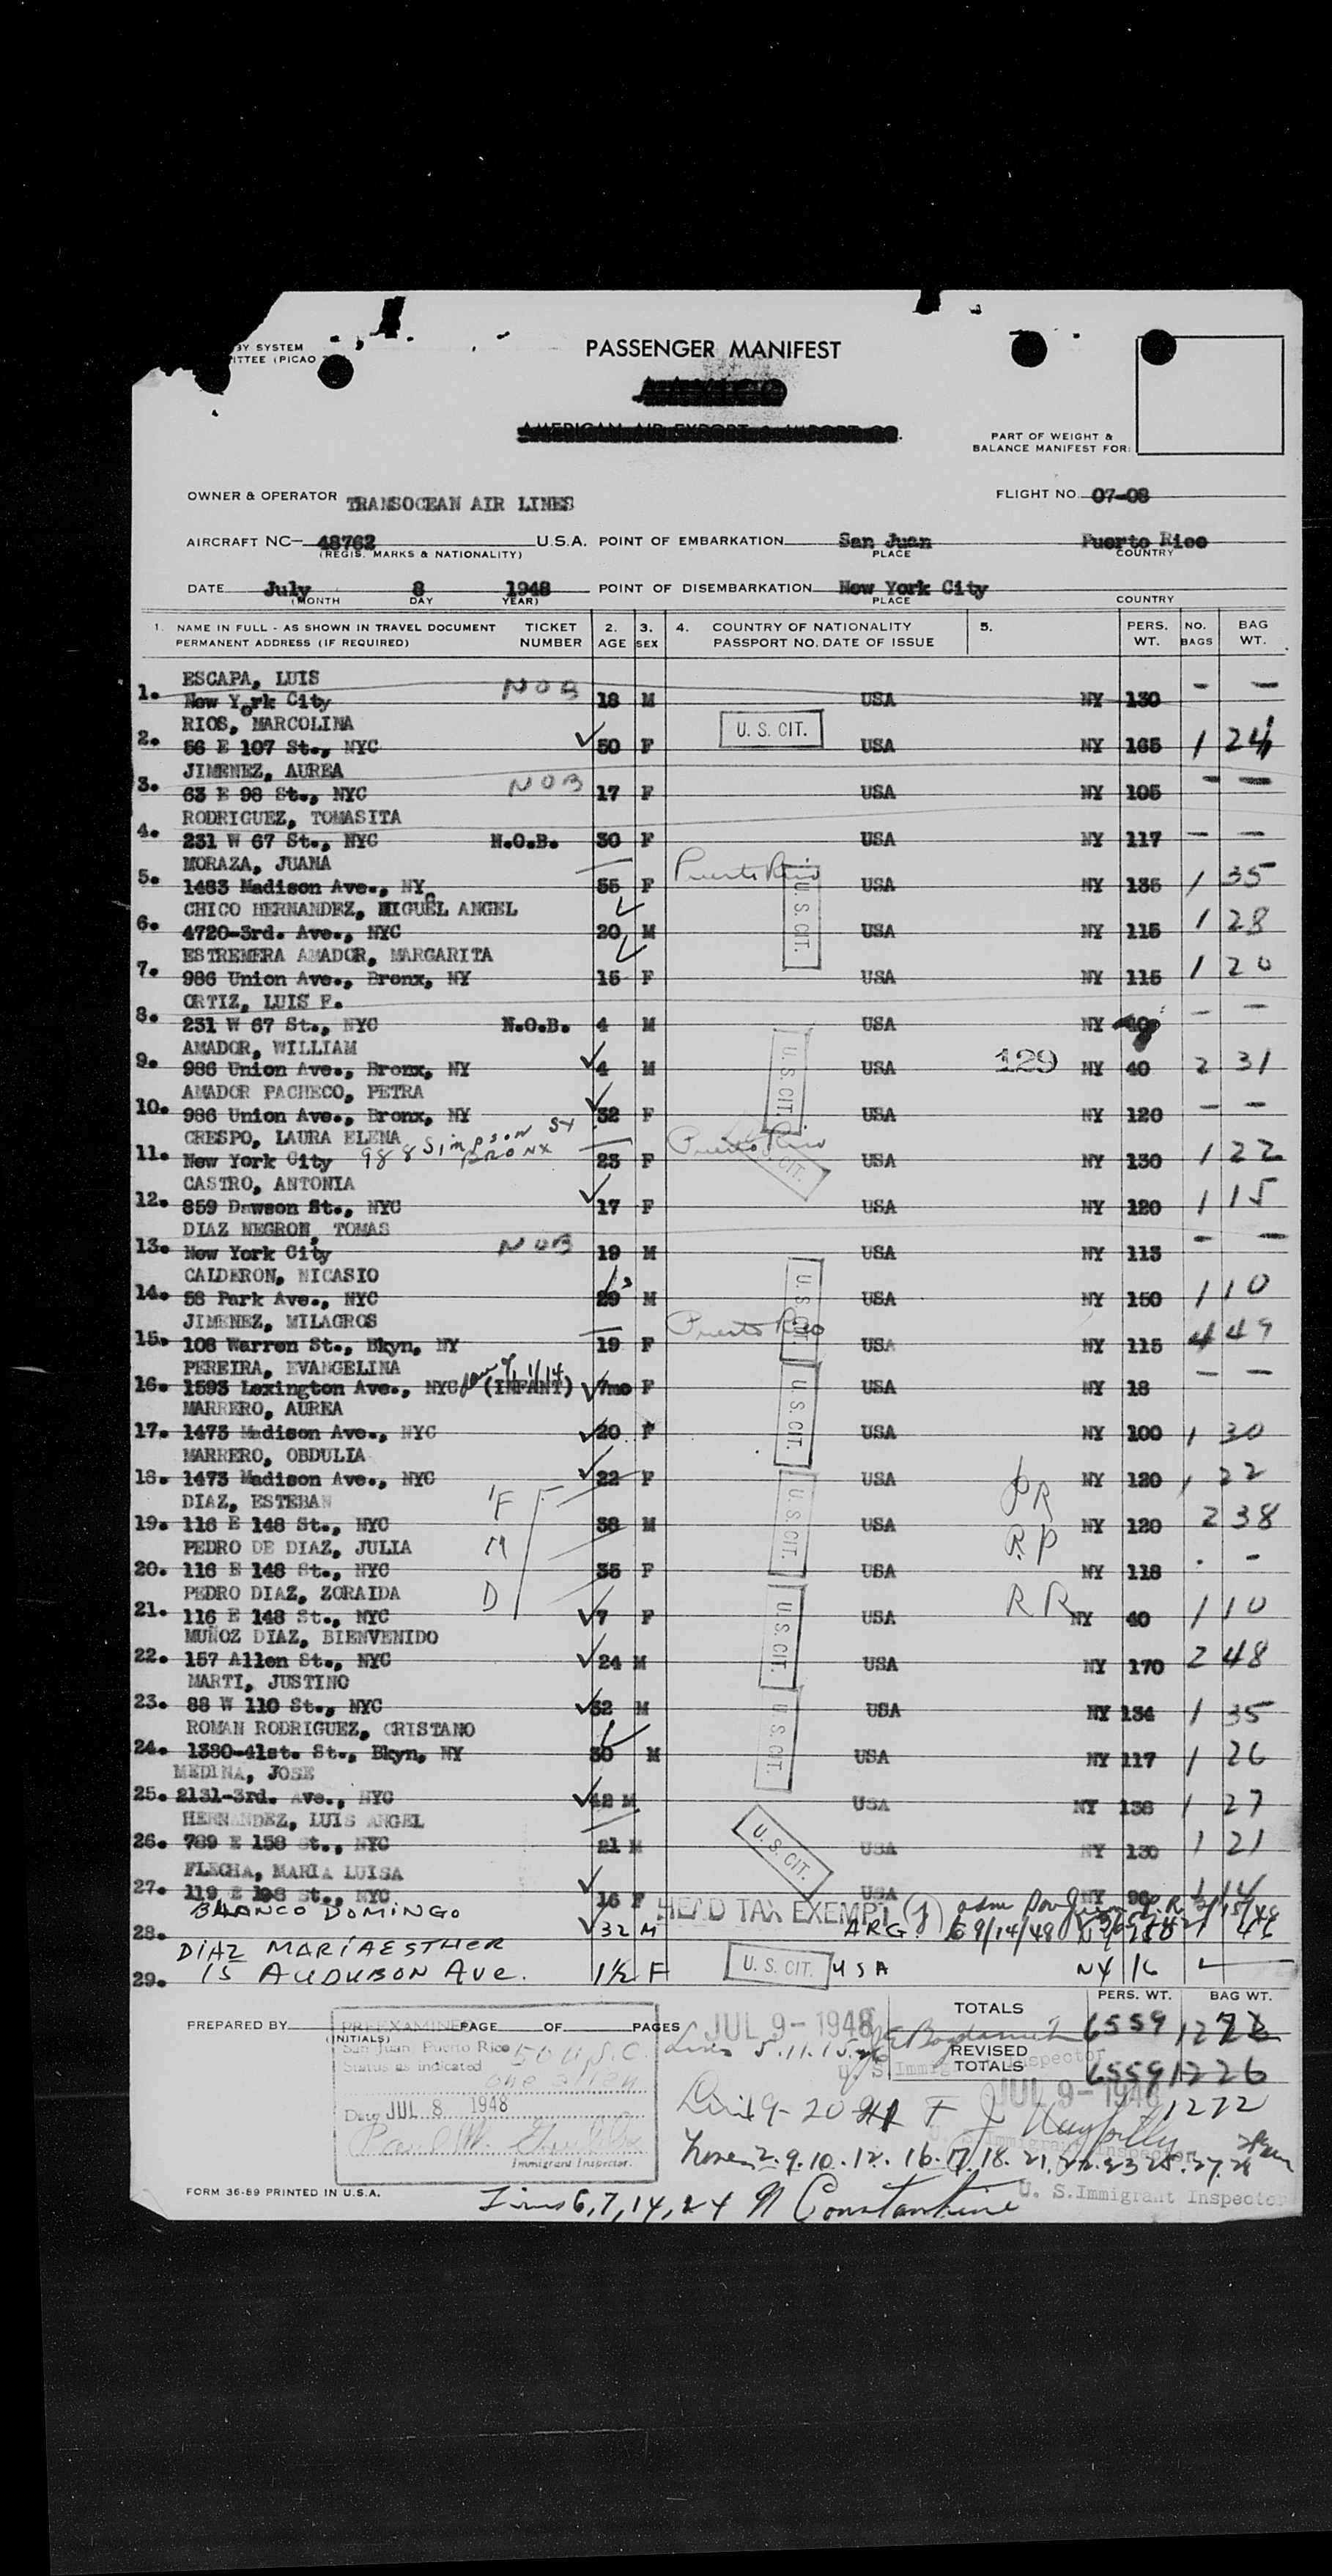 BY SYSTEM
ITTEE (PICAO
PASSENGER MANIFEST
AMERICAN AIR EXPORT & IMPORT CO.
PART OF WEIGHT &
BALANCE MANIFEST FOR:
OWNER & OPERATOR TRANSOCEAN AIR LINES FLIGHT NO. 07-08
AIRCRAFT NC- 48762 U.S.A. POINT OF EMBARKATION San Juan Puerto Rico
(REGIS. MARKS & NATIONALITY) PLACE COUNTRY
DATE July 8 1948 POINT OF DISEMBARKATION New York City
(MONTH DAY YEAR) PLACE COUNTRY
1. NAME IN FULL - AS SHOWN IN TRAVEL DOCUMENT TICKET 2. 3. 4. COUNTRY OF NATIONALITY 5. PERS. NO. BAG
PERMANENT ADDRESS (IF REQUIRED) NUMBER AGE SEX PASSPORT NO. DATE OF ISSUE WT. BAGS WT.
ESCAPA, LUIS
1. New York City NOB 18 M USA NY 130 - -
RIOS, MARCOLINA U. S. CIT.
2. 56 E 107 St., NYC 50 F USA NY 165 1 24
JIMENEZ, AUREA
3. 63 E 98 St., NYC NOB 17 F USA NY 105 - -
RODRIGUEZ, TOMASITA
4. 231 W 67 St., NYC N.O.B. 30 F USA NY 117 - -
MORAZA, JUANA Puerto Rico
5. 1483 Madison Ave., NYC 55 F USA NY 135 1 35
CHICO HERNANDEZ, MIGUEL ANGEL U. S. CIT.
6. 4720-3rd. Ave., NYC 20 M USA NY 115 1 28
ESTREMERA AMADOR, MARGARITA
7. 986 Union Ave., Bronx, NY 15 F USA NY 115 1 20
ORTIZ, LUIS F.
8. 231 W 67 St., NYC N.O.B. 4 M USA NY 40 - -
AMADOR, WILLIAM U. S. CIT. 129
9. 986 Union Ave., Bronx, NY 4 M USA NY 40 2 31
AMADOR PACHECO, PETRA
10. 986 Union Ave., Bronx, NY 32 F USA NY 120 - -
CRESPO, LAURA ELENA 988 Simpson St BRONX Puerto Rico
11. New York City 23 F U.S. CIT. USA NY 130 1 22
CASTRO, ANTONIA
12. 859 Dawson St., NYC 17 F USA NY 120 1 15
DIAZ NEGRON, TOMAS
13. New York City NOB 19 M USA NY 113 - -
CALDERON, NICASIO U. S. CIT.
14. 58 Park Ave., NYC 29 M USA NY 150 1 10
JIMENEZ, MILAGROS Puerto Rico
15. 108 Warren St., Bkyn, NY 19 F USA NY 115 4 49
PEREIRA, EVANGELINA
16. 1593 Lexington Ave., NYC (INFANT) 7mo F USA NY 18 - -
MARRERO, AUREA U. S. CIT.
17. 1473 Madison Ave., NYC 20 F USA NY 100 1 30
MARRERO, OBDULIA
18. 1473 Madison Ave., NYC 22 F USA NY 120 1 22
DIAZ, ESTEBAN F U. S. CIT. PR
19. 116 E 148 St., NYC 38 M USA NY 120 2 38
PEDRO DE DIAZ, JULIA M RP
20. 116 E 148 St., NYC 35 F USA NY 118 - -
PEDRO DIAZ, ZORAIDA D RR
21. 116 E 148 St., NYC 7 F USA NY 40 1 10
MUÑOZ DIAZ, BIENVENIDO U. S. CIT.
22. 157 Allen St., NYC 24 M USA NY 170 2 48
MARTI, JUSTINO
23. 88 W 110 St., NYC 32 M USA NY 134 1 35
ROMAN RODRIGUEZ, CRISTANO U. S. CIT.
24. 1380-41st. St., Bkyn, NY 30 M USA NY 117 1 26
MEDINA, JOSE
25. 2131-3rd. Ave., NYC 42 M USA NY 138 1 27
HERNANDEZ, LUIS ANGEL U. S. CIT.
26. 789 E 158 St., NYC 21 M USA NY 130 1 21
FLECHA, MARIA LUISA
27. 119 E 198 St., NYC 16 F USA NY 98 1 14
BLANCO DOMINGO HEAD TAX EXEMPT
28. 32 M ARG. 9/14/48
DIAZ MARIA ESTHER
29. 15 AUDUBON AVE. 1½ F U. S. CIT. USA NY 16
PERS. WT. BAG WT.
PREPARED BY PAGE OF PAGES TOTALS 6559
(INITIALS)
REVISED TOTALS 6559 1226
1272
PREEXAMINED
San Juan Puerto Rico
Status as indicated
50 U.S.C.
one alien
Date JUL 8 1948
Immigrant Inspector.
JUL 9- 1948
Lines 5.11.15.26
U. S. Immigrant Inspector
JUL 9- 1948
U. S. Immigrant Inspector
Lines 2.9.10.12.16.17.18.21.22.23.25.27.28
Lines 6,7,14,24 N Constantine
U. S. Immigrant Inspector
FORM 36-89 PRINTED IN U.S.A.